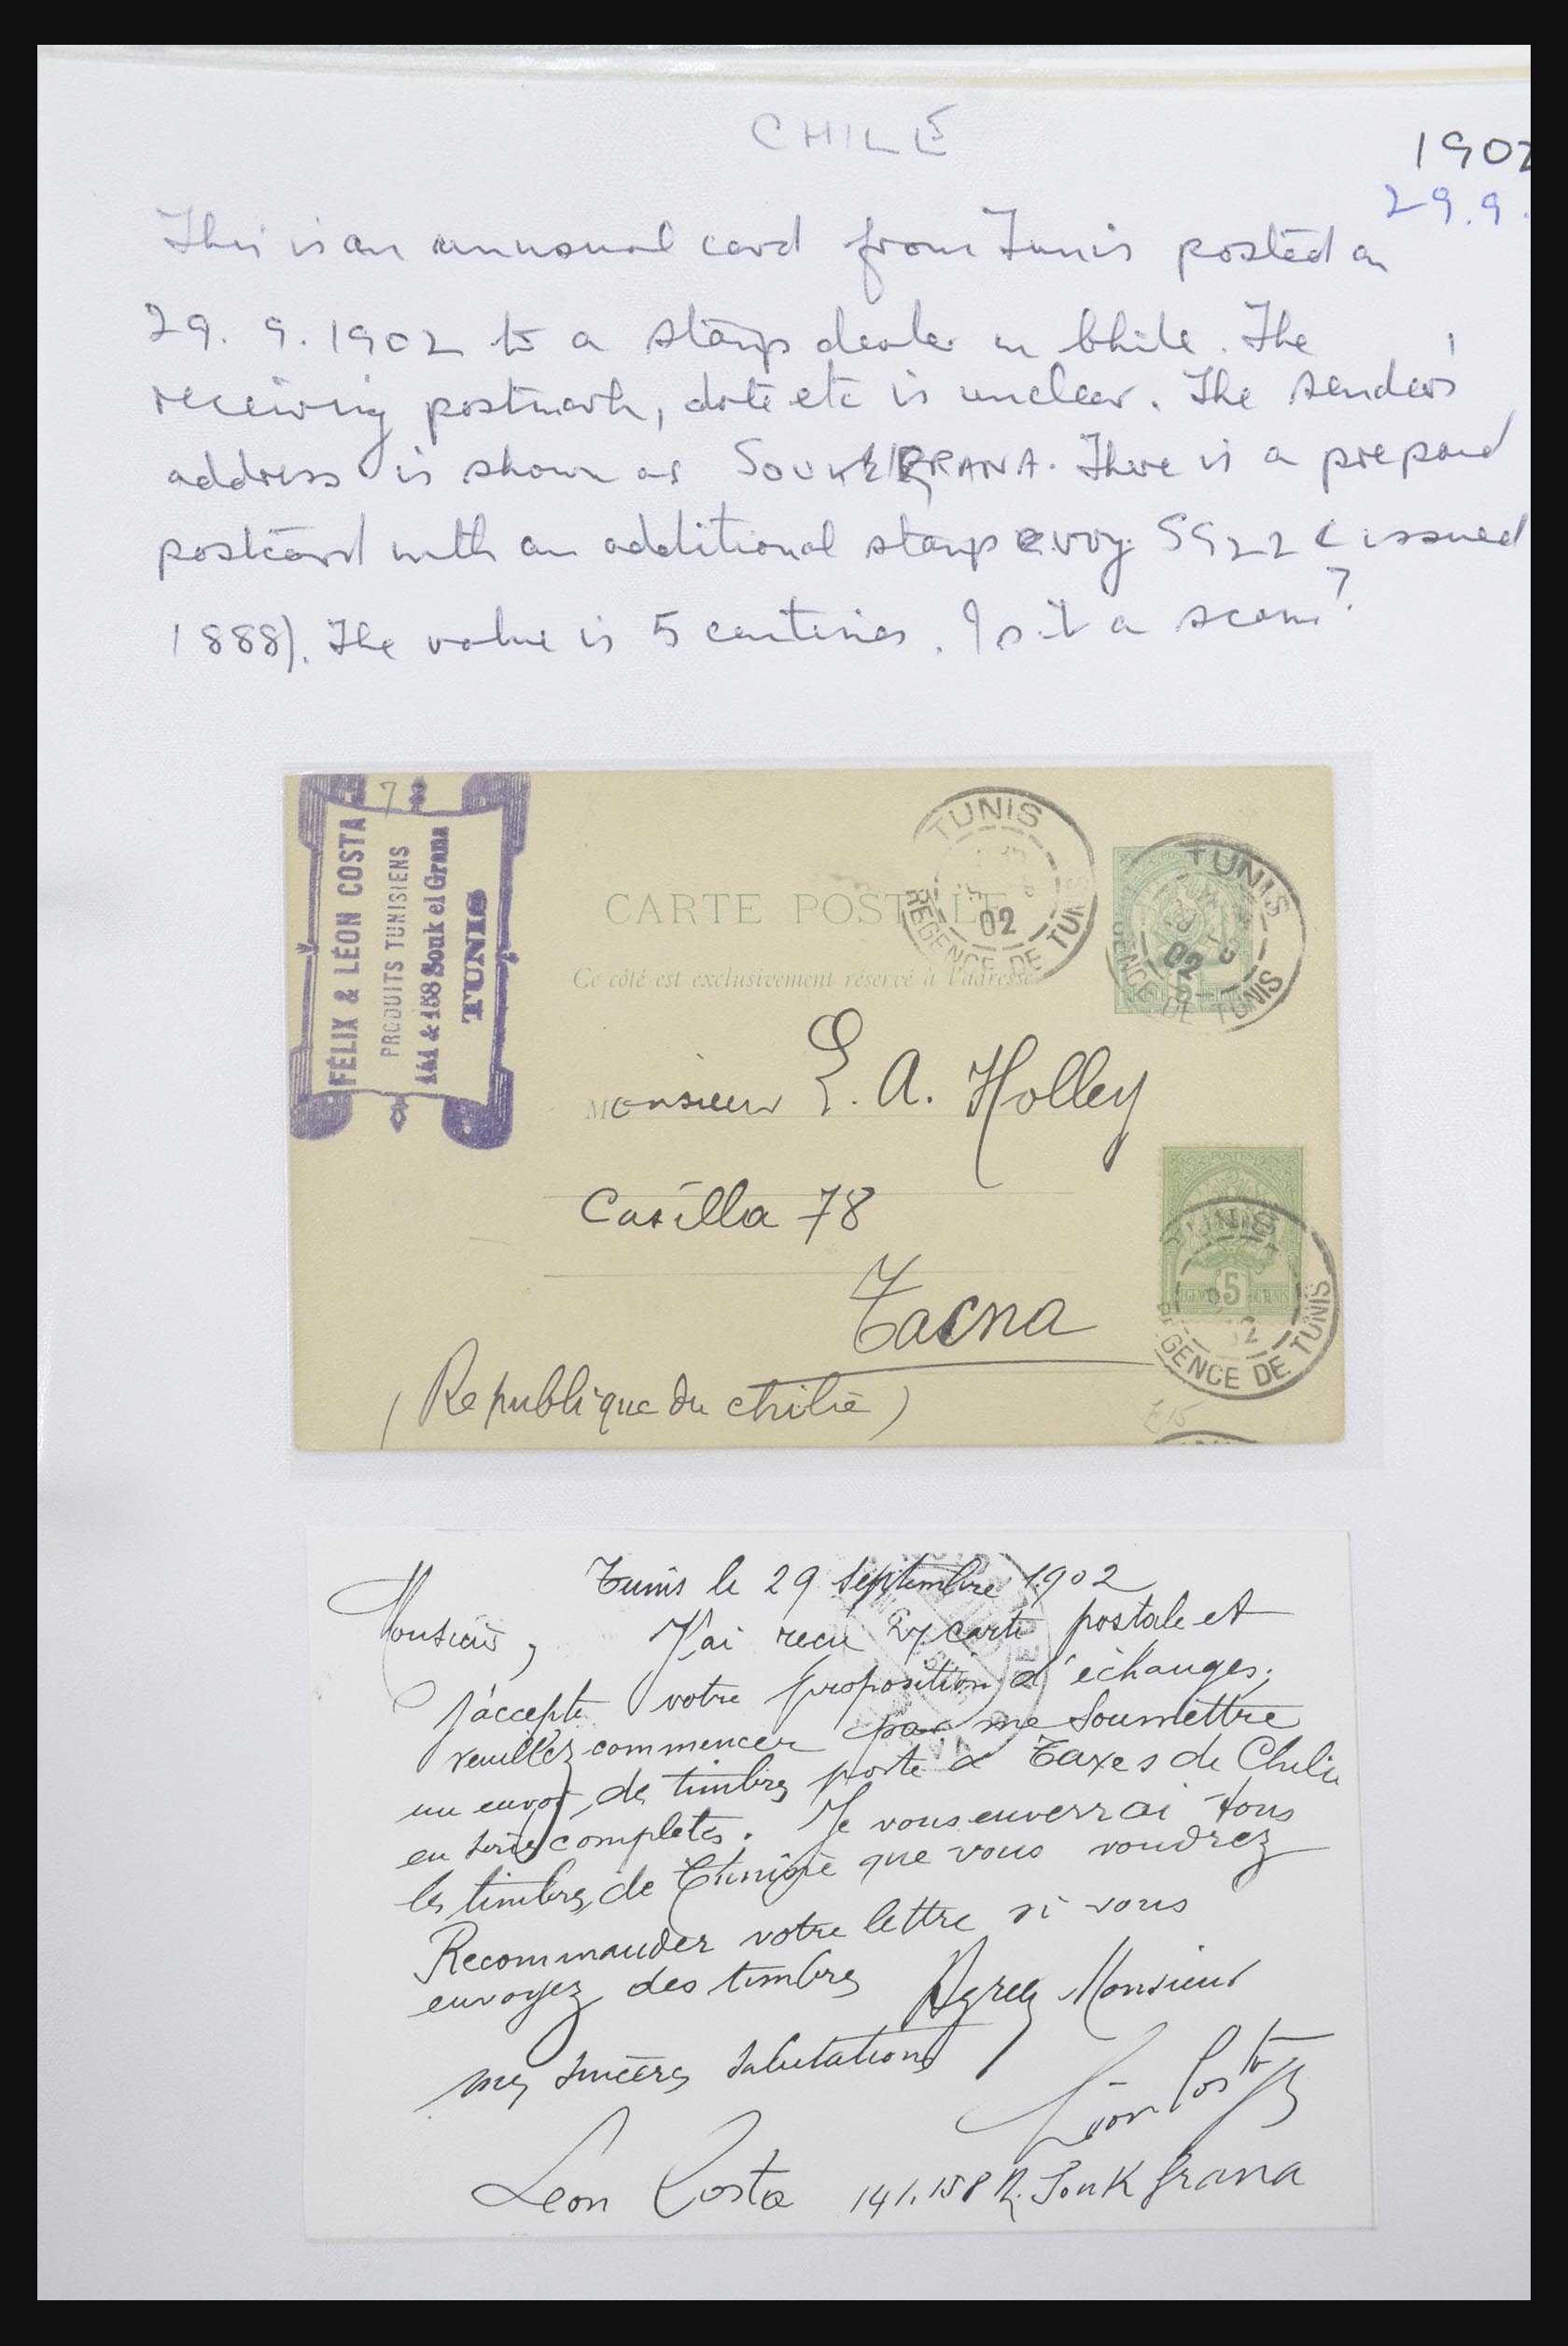 CHILE
1902
29.9.
This is an unusual card from Tunis posted on
29. 9. 1902 to a stamp dealer in Chile. The
receiving postmark, date etc is unclear. The sender's
address is shown as SOUK EL GRANA. There is a prepaid
postcard with an additional stamp SG22 (issued
1888). The value is 5 centimes. Is it a scam?
7
FÉLIX & LÉON COSTA
PRODUITS TUNISIENS
141 & 158 Souk el Grana
TUNIS
TUNIS
02
REGENCE DE TUNIS
TUNIS
02
REGENCE DE TUNIS
CARTE POSTALE
Ce côté est exclusivement réservé à l'adresse
Monsieur E. A. Holley
Casilla 78
Tacna
(Republique du Chilie)
POSTES
5
REGENCE DE TUNIS
TUNIS
REGENCE DE TUNIS
E15
Tunis le 29 Septembre 1902
Monsieur, J'ai recu carte postale et
j'accepte votre proposition d'échanges.
veuillez commencer par me soumettre
un envoi de timbres poste & Taxes de Chili
en séries complètes. Je vous enverrai tous
les timbres de Tunisie que vous voudrez
Recommander votre lettre si vous
envoyez des timbres Agreez Monsieur
mes sincères salutations
Léon Costa
Leon Costa 141.158 R. Souk Grana